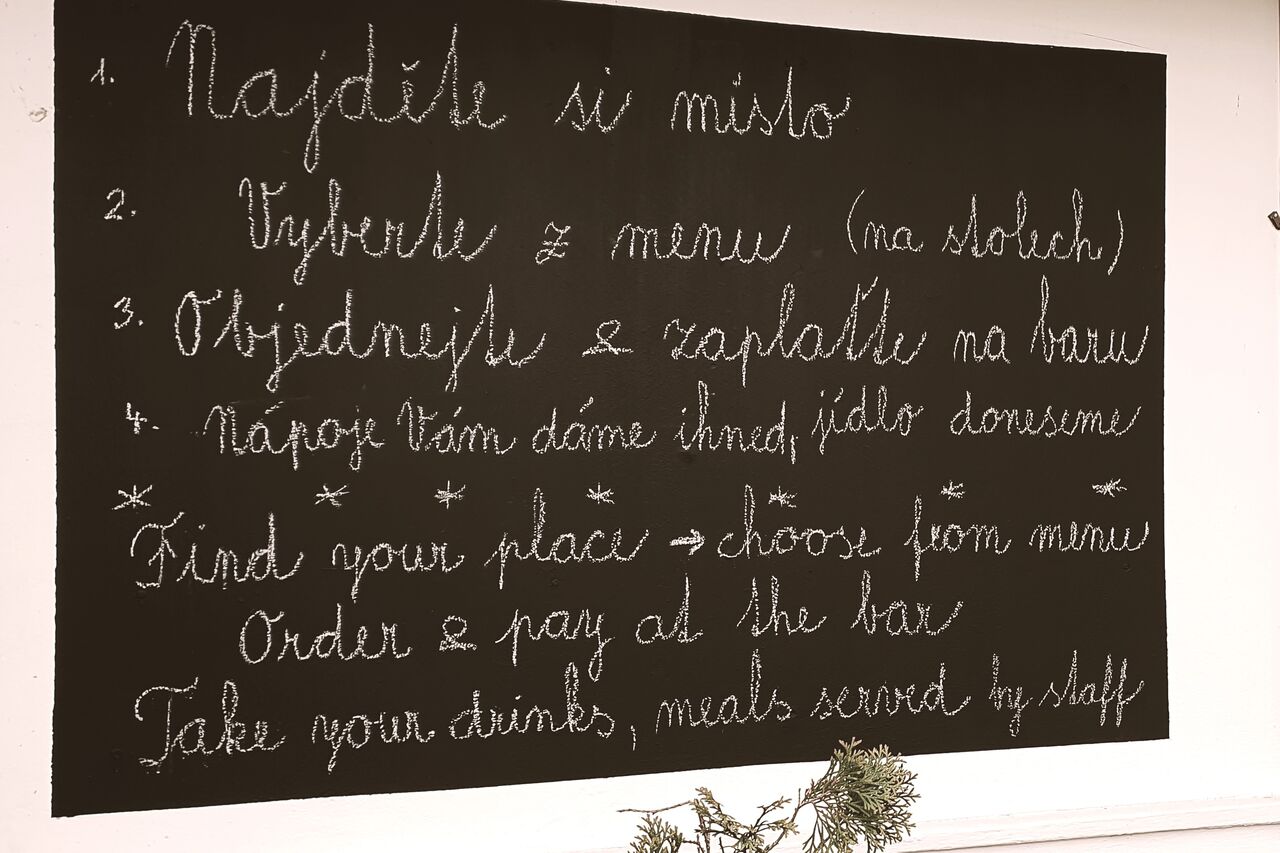 1. Najděte si místo
2. Vyberte z menu (na stolech)
3. Objednejte & zaplaťte na baru
4. Nápoje Vám dáme ihned, jídlo doneseme
* * * * * * *
Find your place → choose from menu
Order & pay at the bar
Take your drinks, meals served by staff